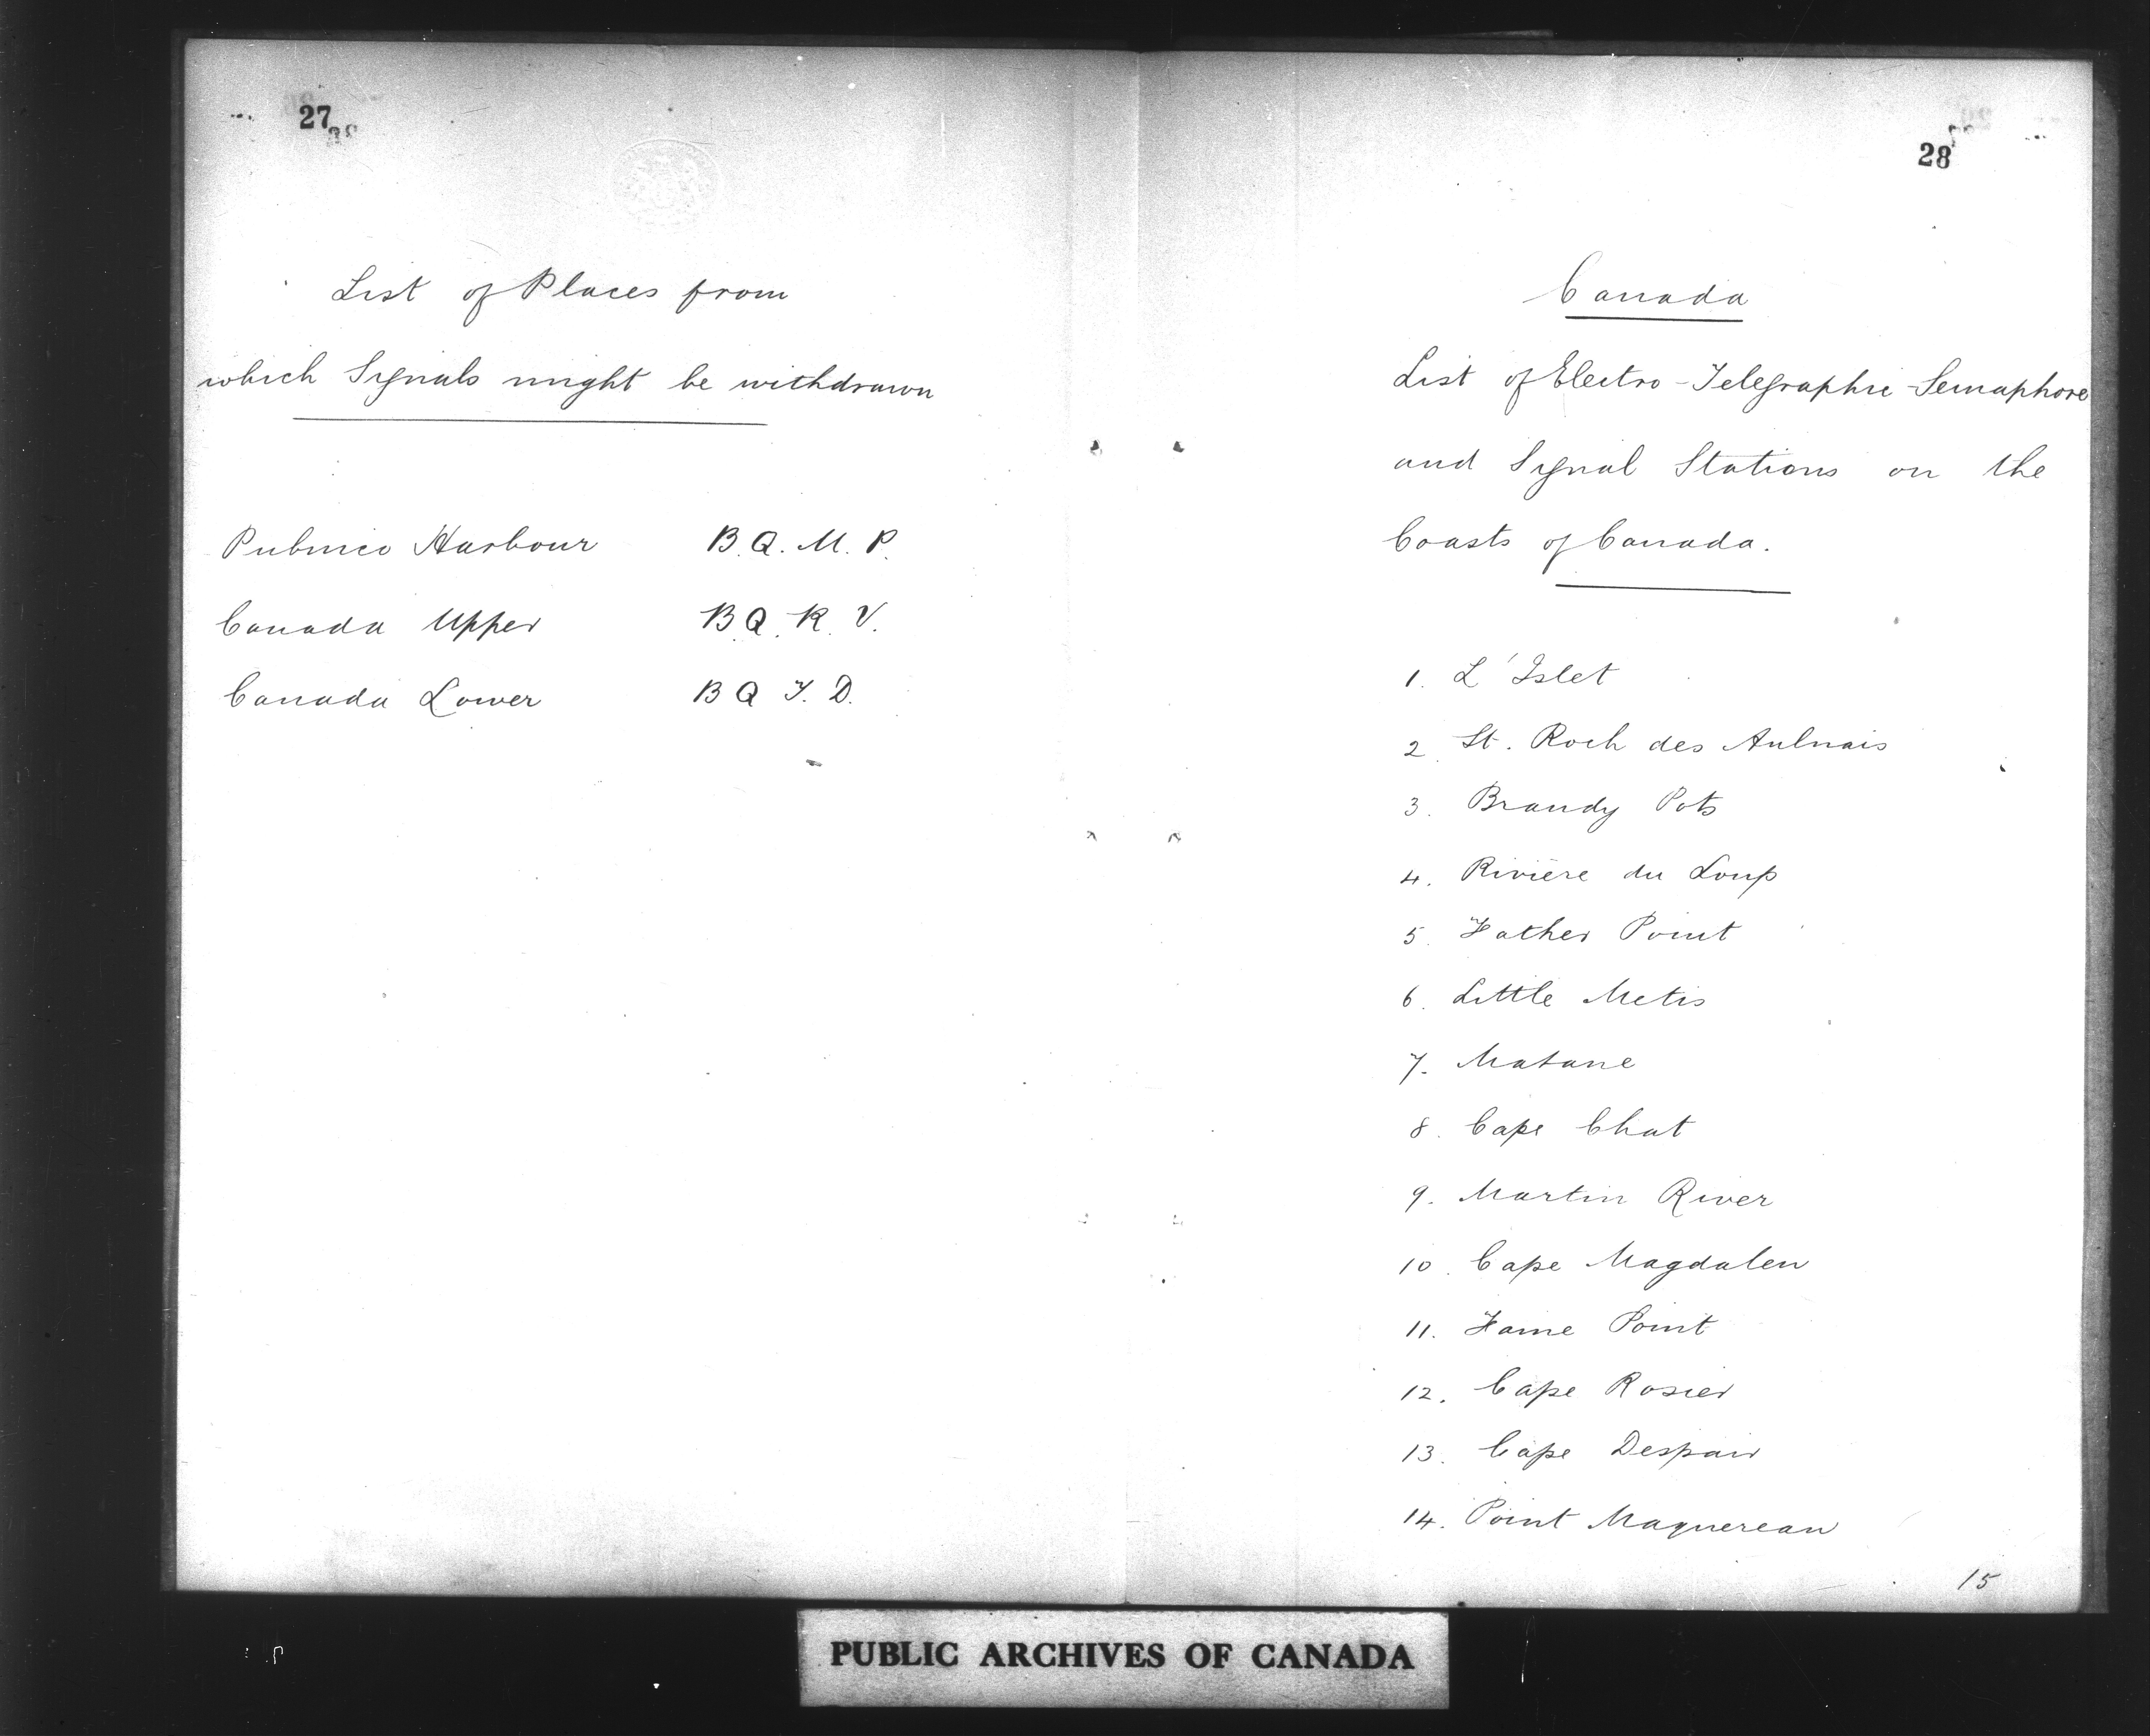 27
List of Places from
which Signals might be withdrawn
Pubnico Harbour B.Q.M.P.
Canada Upper B Q. R. V.
Canada Lower B Q T. D.
28
Canada
List of Electro-Telegraphic-Semaphore
and Signal Stations on the
Coasts of Canada.
1. L'Islet
2. St. Roch des Aulnais
3. Brandy Pots
4. Rivière du Loup
5. Father Point
6. Little Metis
7. Matane
8. Cape Chat
9. Martin River
10. Cape Magdalen
11. Fame Point
12. Cape Rosier
13. Cape Despair
14. Point Maquereau
15
PUBLIC ARCHIVES OF CANADA